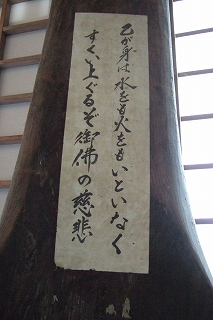 己が身は水をも火をもいといなく
すくい上ぐるぞ御佛の慈悲